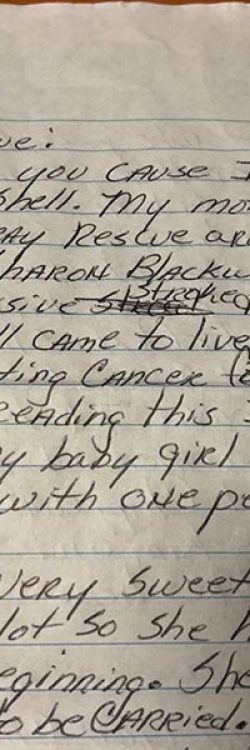 ve:
you CAUSE I
Shell. My mo
RAY Rescue ar
SHARON Blackw
sive Stroked
ll CAME to live
ting CANCER
eading this I
y baby girl
with ONE pe
very Sweet
lot So She h
eginning. She
to be CARRIED.